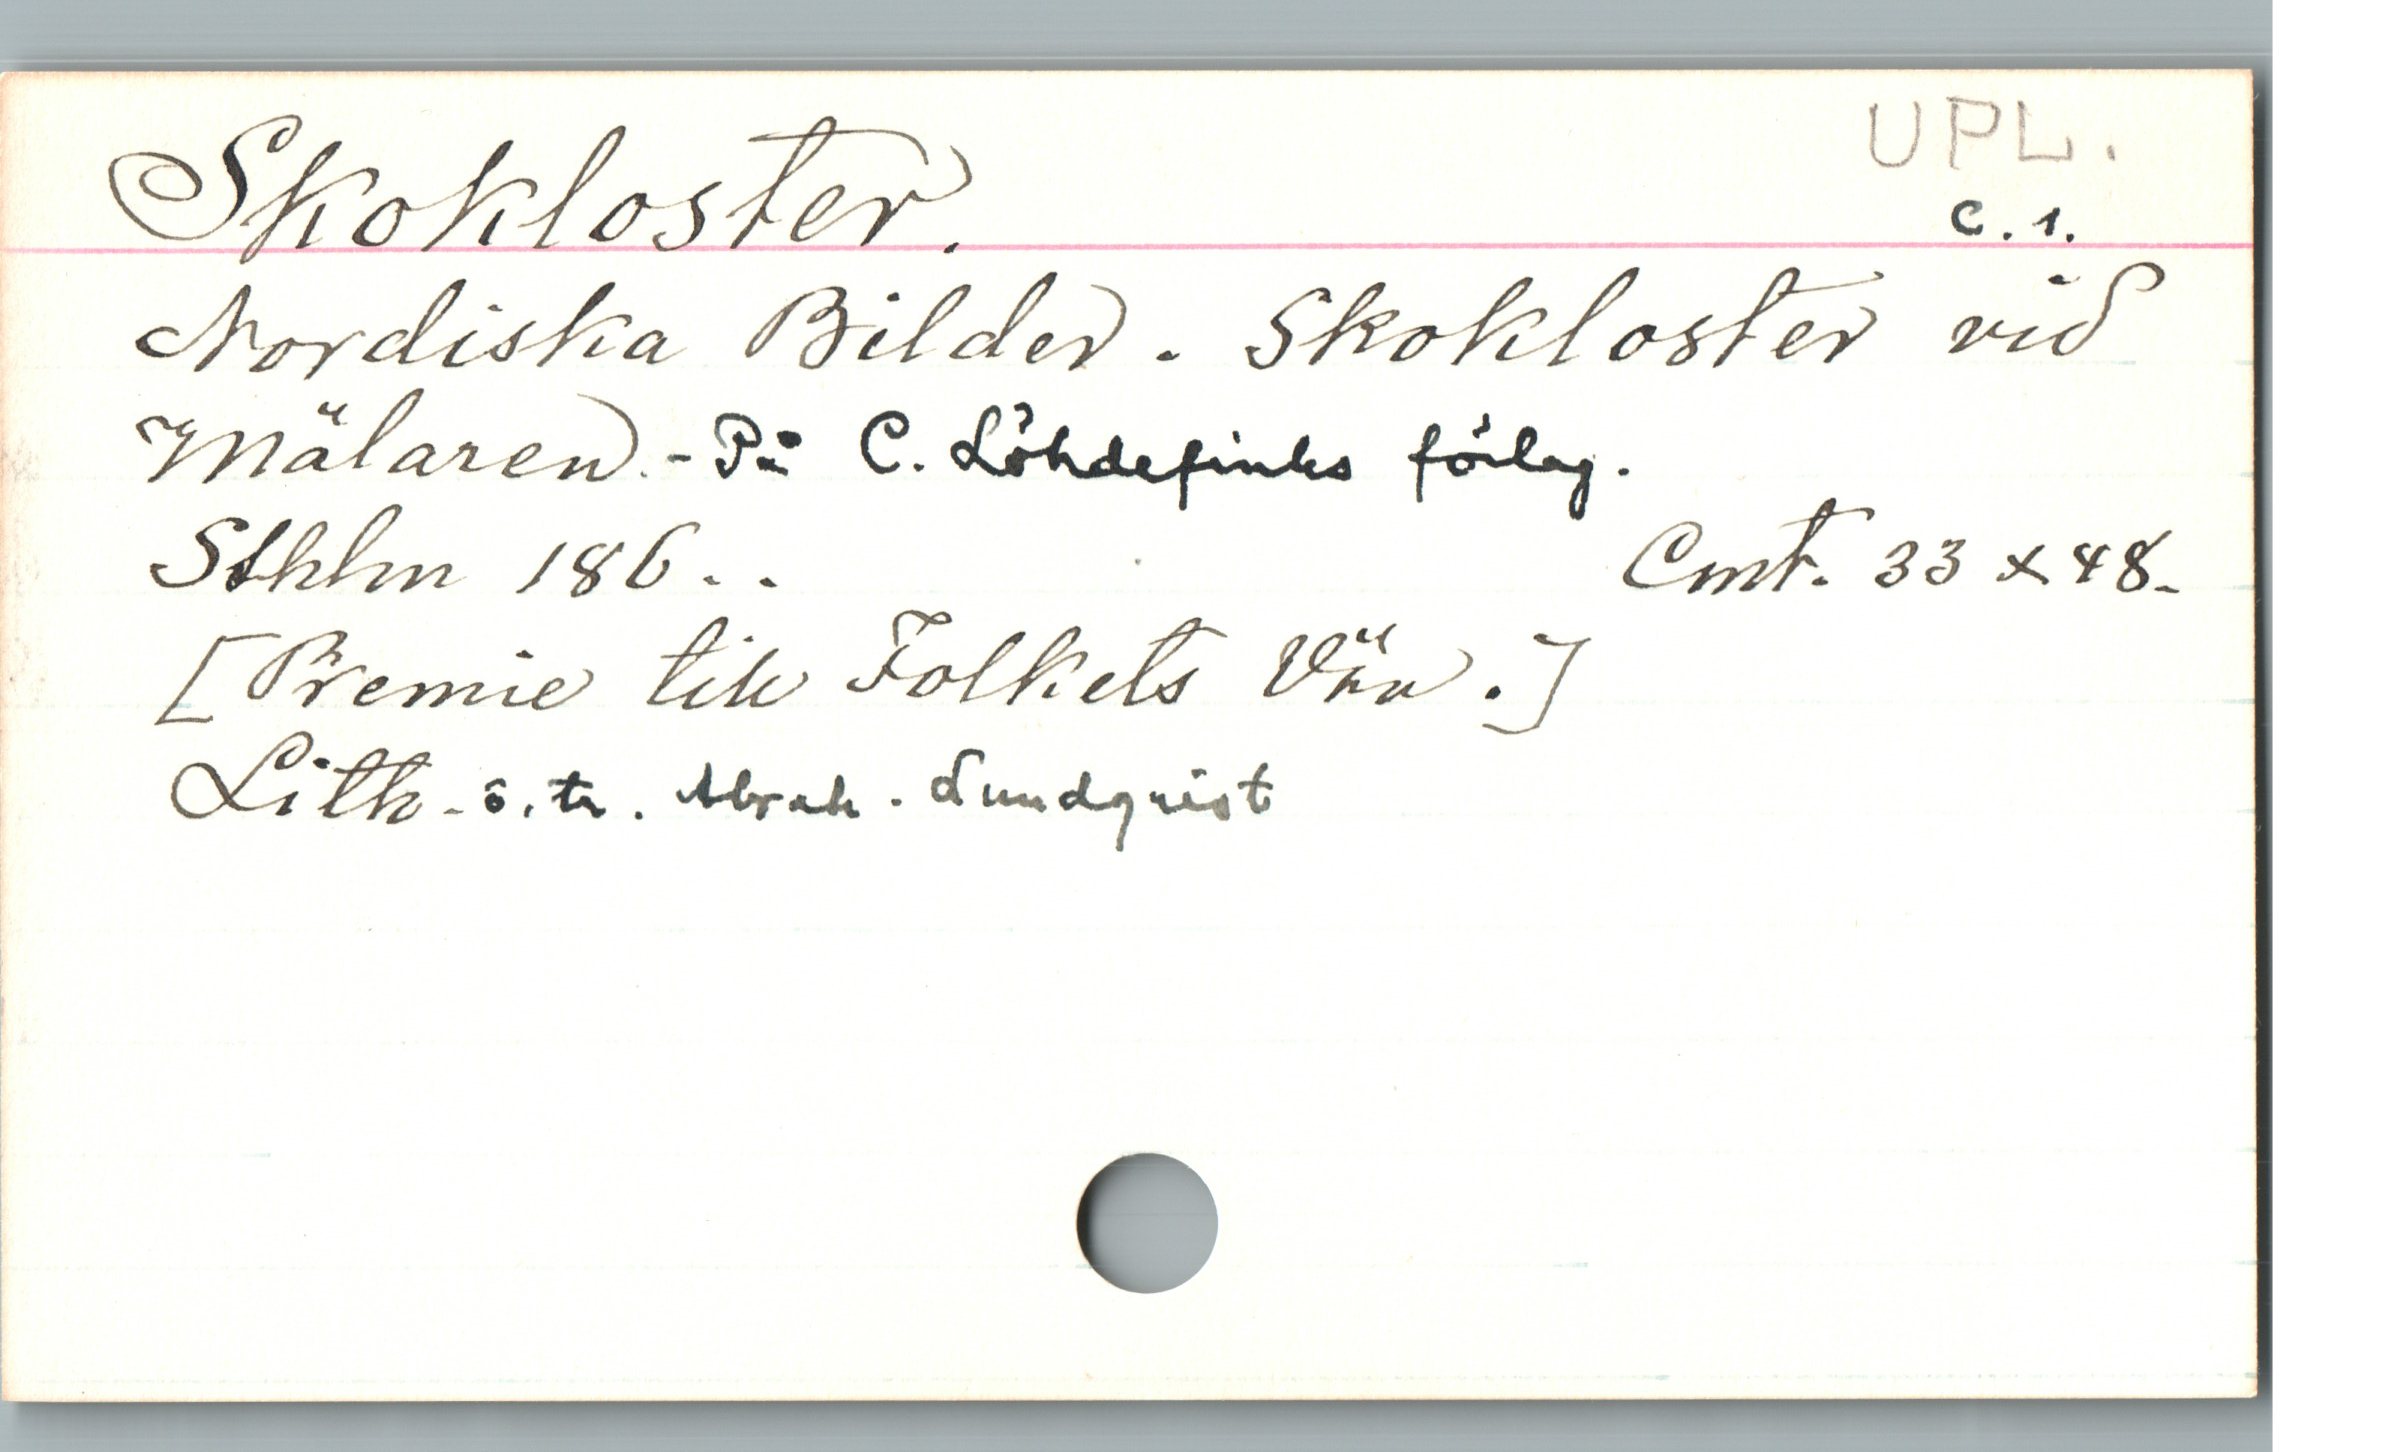 UPL.
Skokloster.
C. 1.
Nordiska Bilder. Skokloster vid
Mälaren. - På C. Löhdefinks förlag.
Sthlm 186..
Cmt. 33 x 48.
[Premie till Folkets Vän.]
Lith. o. tr. Abrah. Lundquist